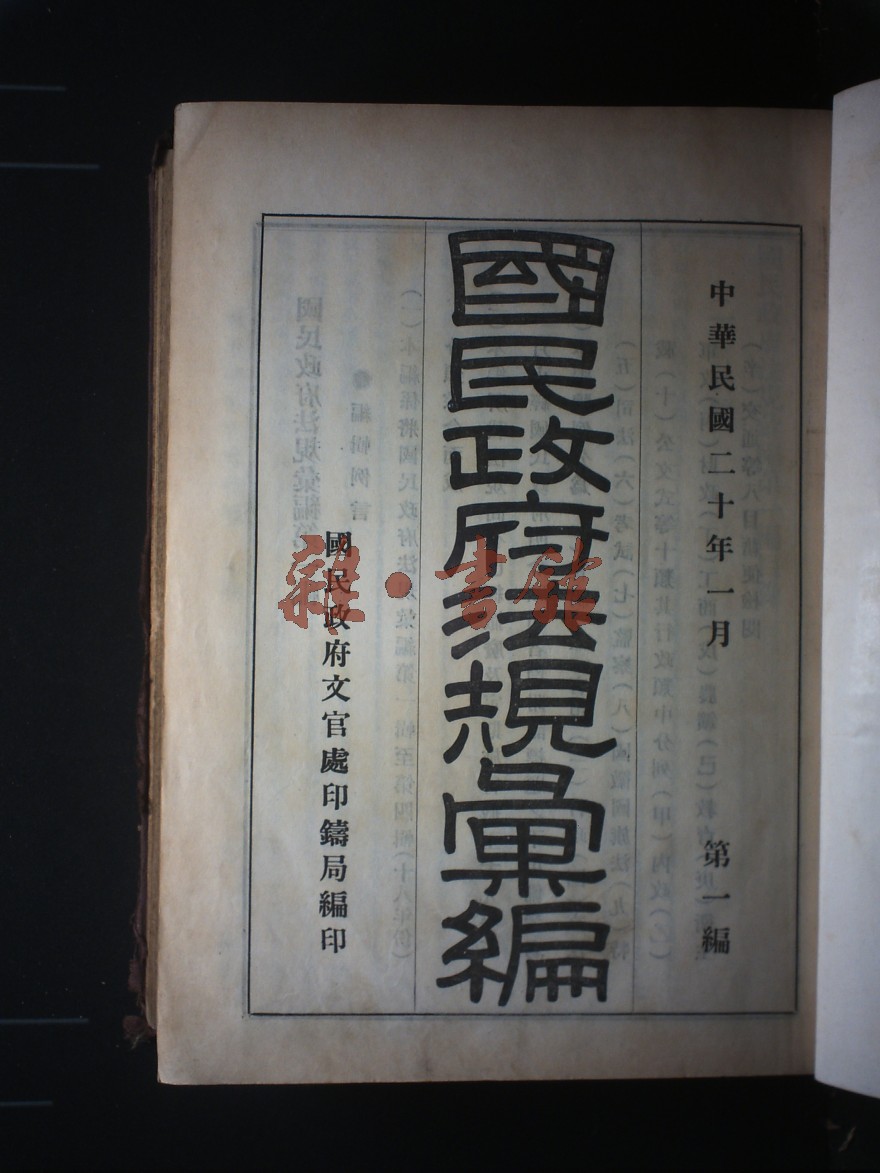 中華民國二十年一月　第一編
國民政府法規彙編
國民政府文官處印鑄局編印
雜·書館